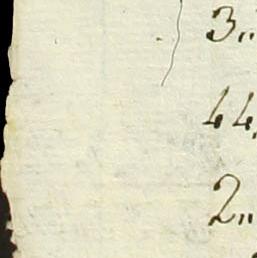 3..
44.
2..